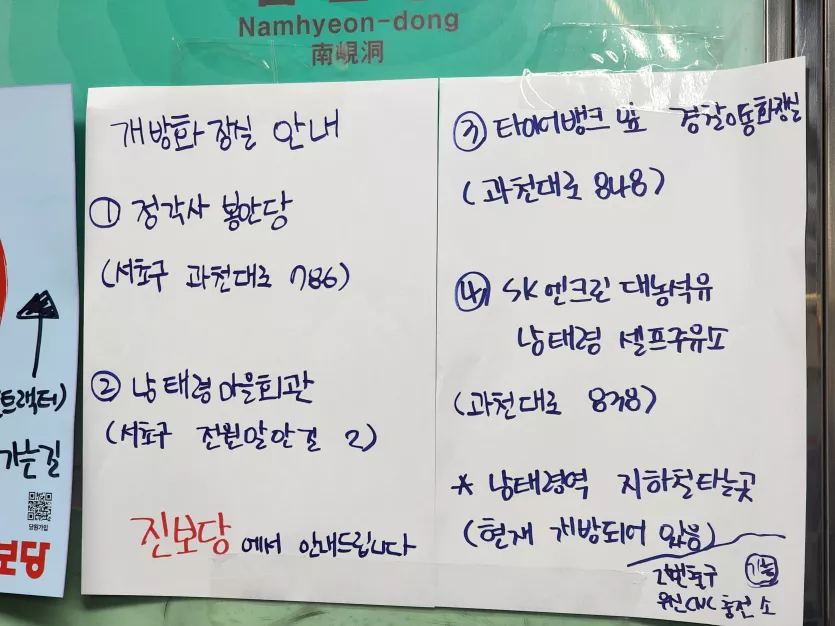 Namhyeon-dong
南峴洞
개방화장실 안내
① 정각사 봉안당
(서초구 과천대로 786)
② 남태령마을회관
(서초구 전원말안길 2)
진보당에서 안내드립니다
③ 타이어뱅크 앞 경찰이동화장실
(과천대로 848)
④ SK엔크린 대농석유
남태령 셀프주유소
(과천대로 838)
* 남태령역 지하철타는곳
(현재 개방되어 있음)
2번출구 가능
CNG 충전소
트랙터)
가는길
당원가입
보당